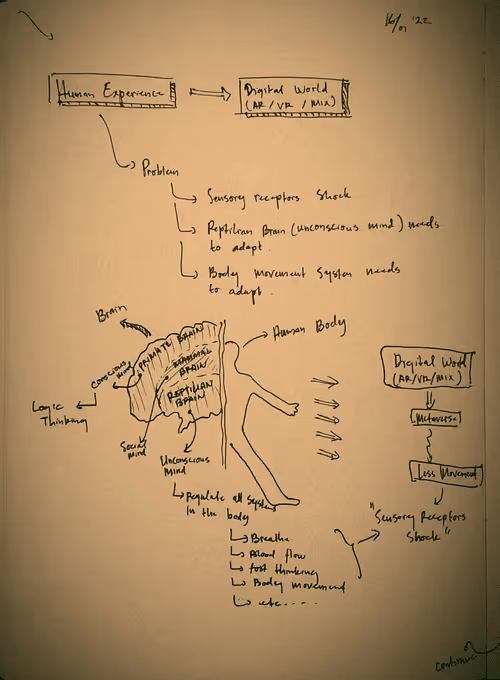 '22
Human Experience
Digital World
(AR/VR/MIX)
Problem
Sensory receptors shock
Reptilian Brain (unconscious mind) needs
to adapt.
Body movement system needs
to adapt.
Brain
Human Body
PRIMATE BRAIN
MAMMAL
BRAIN
REPTILIAN
BRAIN
Conscious
Mind
Logic
Thinking
Social
mind
Unconscious
Mind
Regulate all system
in the body
Breathe
Blood flow
fast thinking
Body movement
etc.....
Digital World
(AR/VR/MIX)
Metaverse
Less Movement
"Sensory Receptors
Shock"
continue